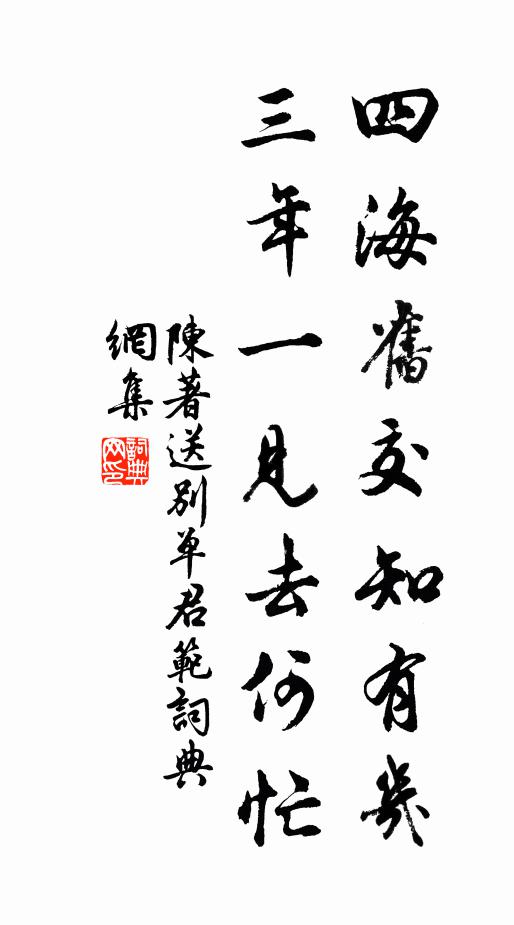 四海舊交知有幾
三年一見去何忙
陳著送別单君範詞典
網集
詞典
网印